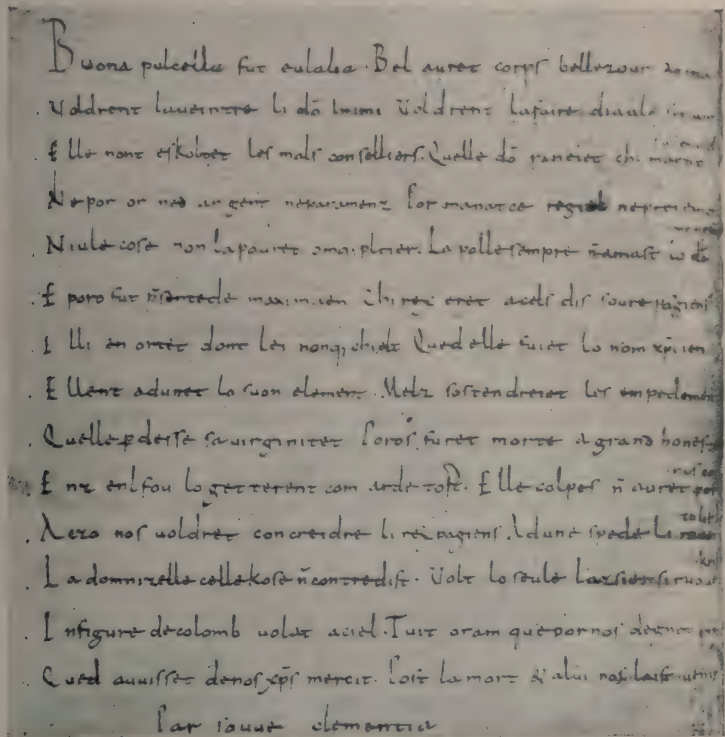 Buona pulcella fut eulalia. Bel auret corps bellezour anima
Voldrent laveintre li dō Inimi. Voldrent lafaire diaule servir
Elle nont eskoltet les mals conselliers. Quelle dō raneiet chi maent
Ne por or ned argent neparamenz. Por manatce regiel ne preiement
Niule cose non lapouret omq; pleier. La polle sempre ñ amast lo dō
E poro fut p̄sentede maximiien. Chi rex eret acels dis soure pagiens
Illi en ortet dont lei nonq; chielt. Qued elle fuiet lo nom xp̄iien
Ellent adunet lo suon element. Melz sostendreiet les empedementz
Quelle ꝑdesse sa virginitet. Poros furet morte a grand honestet
Enz enl fou lo getterent com arde tost. Elle colpes ñ auret por
Aezo nos voldret concreidre li rex pagiens. Ad une spede li
La domnizelle celle kose ñ contredist. Volt lo seule lazsier si ruovet
In figure de colomb volat a ciel. Tuit oram que por nos degnet
Qued auuisset de nos xp̄s mercit. Post la mort & a lui nos laist venir
Par souue clementia